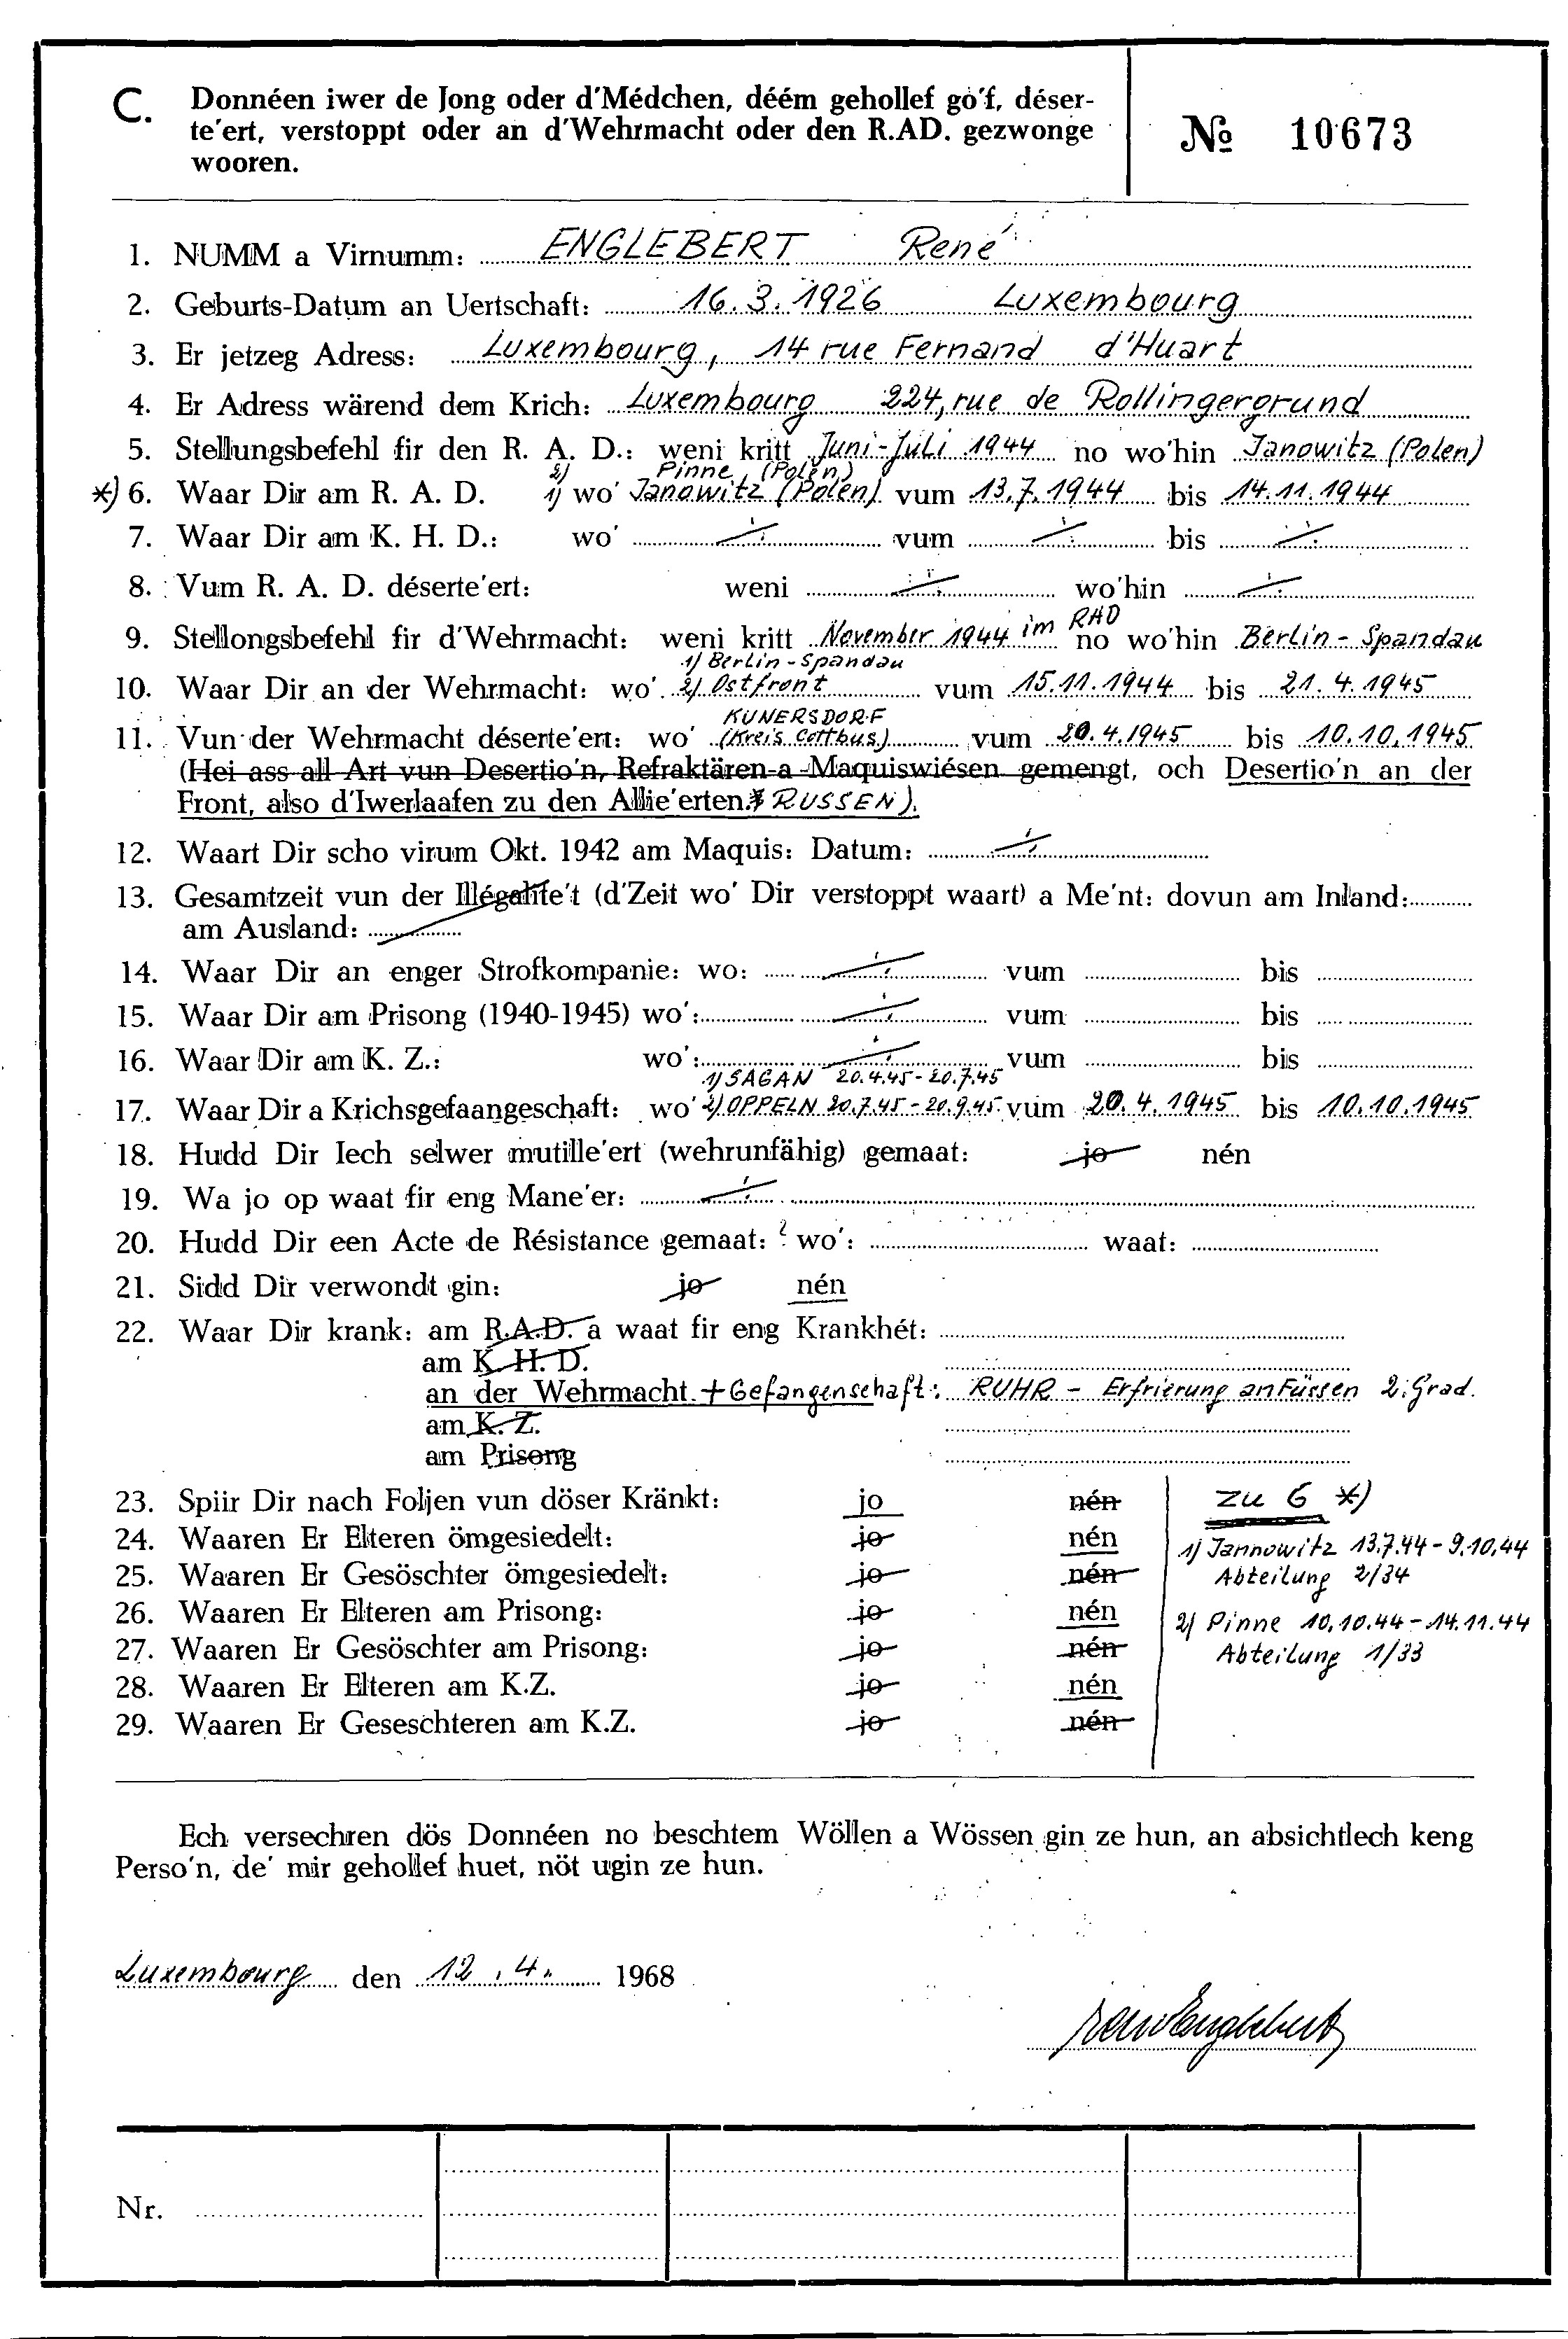 C. Donnéen iwer de Jong oder d'Médchen, déém gehollef gó'f, déser-
te'ert, verstoppt oder an d'Wehrmacht oder den R.AD. gezwonge
wooren.
№ 10673
1. NUMM a Virnumm: ENGLEBERT René
2. Geburts-Datum an Uertschaft: 16.3.1926 Luxembourg
3. Er jetzeg Adress: Luxembourg, 14 rue Fernand d'Huart
4. Er Adress wärend dem Krich: Luxembourg 224, rue de Rollingergrund
5. Stellungsbefehl fir den R. A. D.: weni kritt Juni-Juli 1944 no wo'hin Janowitz (Polen)
2) Pinne (Polen)
*) 6. Waar Dir am R. A. D. 1) wo' Janowitz (Polen) vum 13.7.1944 bis 14.11.1944
7. Waar Dir am K. H. D.: wo' ./. vum ./. bis ./.
8. Vum R. A. D. déserte'ert: weni ./. wo'hin ./.
9. Stellongsbefehl fir d'Wehrmacht: weni kritt November 1944 im RAD no wo'hin Berlin-Spandau
1) Berlin-Spandau
10. Waar Dir an der Wehrmacht: wo' 2) Ostfront vum 15.11.1944 bis 21.4.1945
KUNERSDORF
11. Vun der Wehrmacht déserte'ert: wo' (Kreis Cottbus) vum 20.4.1945 bis 10.10.1945
(Hei ass all Art vun Desertio'n, Refraktären a Maquiswiésen gemengt, och Desertio'n an der
Front, also d'Iwerlaafen zu den Allie'erten. RUSSEN).
12. Waart Dir scho virum Okt. 1942 am Maquis: Datum: ./.
13. Gesamtzeit vun der Illégalite't (d'Zeit wo' Dir verstoppt waart) a Me'nt: dovun am Inland:
am Ausland:
14. Waar Dir an enger Strofkompanie: wo: ./. vum bis
15. Waar Dir am Prisong (1940-1945) wo': ./. vum bis
16. Waar Dir am K. Z.: wo': ./. vum bis
1) SAGAN 20.4.45-20.7.45
17. Waar Dir a Krichsgefaangeschaft: wo' 2) OPPELN 20.7.45-20.9.45 vum 20.4.1945 bis 10.10.1945
18. Hudd Dir Iech selwer mutille'ert (wehrunfähig) gemaat: jo nén
19. Wa jo op waat fir eng Mane'er: ./.
20. Hudd Dir een Acte de Résistance gemaat: ? wo': waat:
21. Sidd Dir verwondt gin: jo nén
22. Waar Dir krank: am R.A.D. a waat fir eng Krankhét:
am K. H. D.
an der Wehrmacht. + Gefangenschaft: RUHR - Erfrierung an Füssen 2. Grad.
am K. Z.
am Prisong
23. Spiir Dir nach Foljen vun döser Kränkt: jo nén
24. Waaren Er Elteren ömgesiedelt: jo nén
25. Waaren Er Gesöschter ömgesiedelt: jo nén
26. Waaren Er Elteren am Prisong: jo nén
27. Waaren Er Gesöschter am Prisong: jo nén
28. Waaren Er Elteren am K.Z. jo nén
29. Waaren Er Geseschteren am K.Z. jo nén
zu 6 *)
1) Jannowitz 13.7.44-9.10.44
Abteilung 2/34
2) Pinne 10.10.44-14.11.44
Abteilung 1/33
Ech versechren dös Donnéen no beschtem Wöllen a Wössen gin ze hun, an absichtlech keng
Perso'n, de' mir gehollef huet, nöt ugin ze hun.
Luxembourg den 12.4. 1968
René Englebert
Nr.